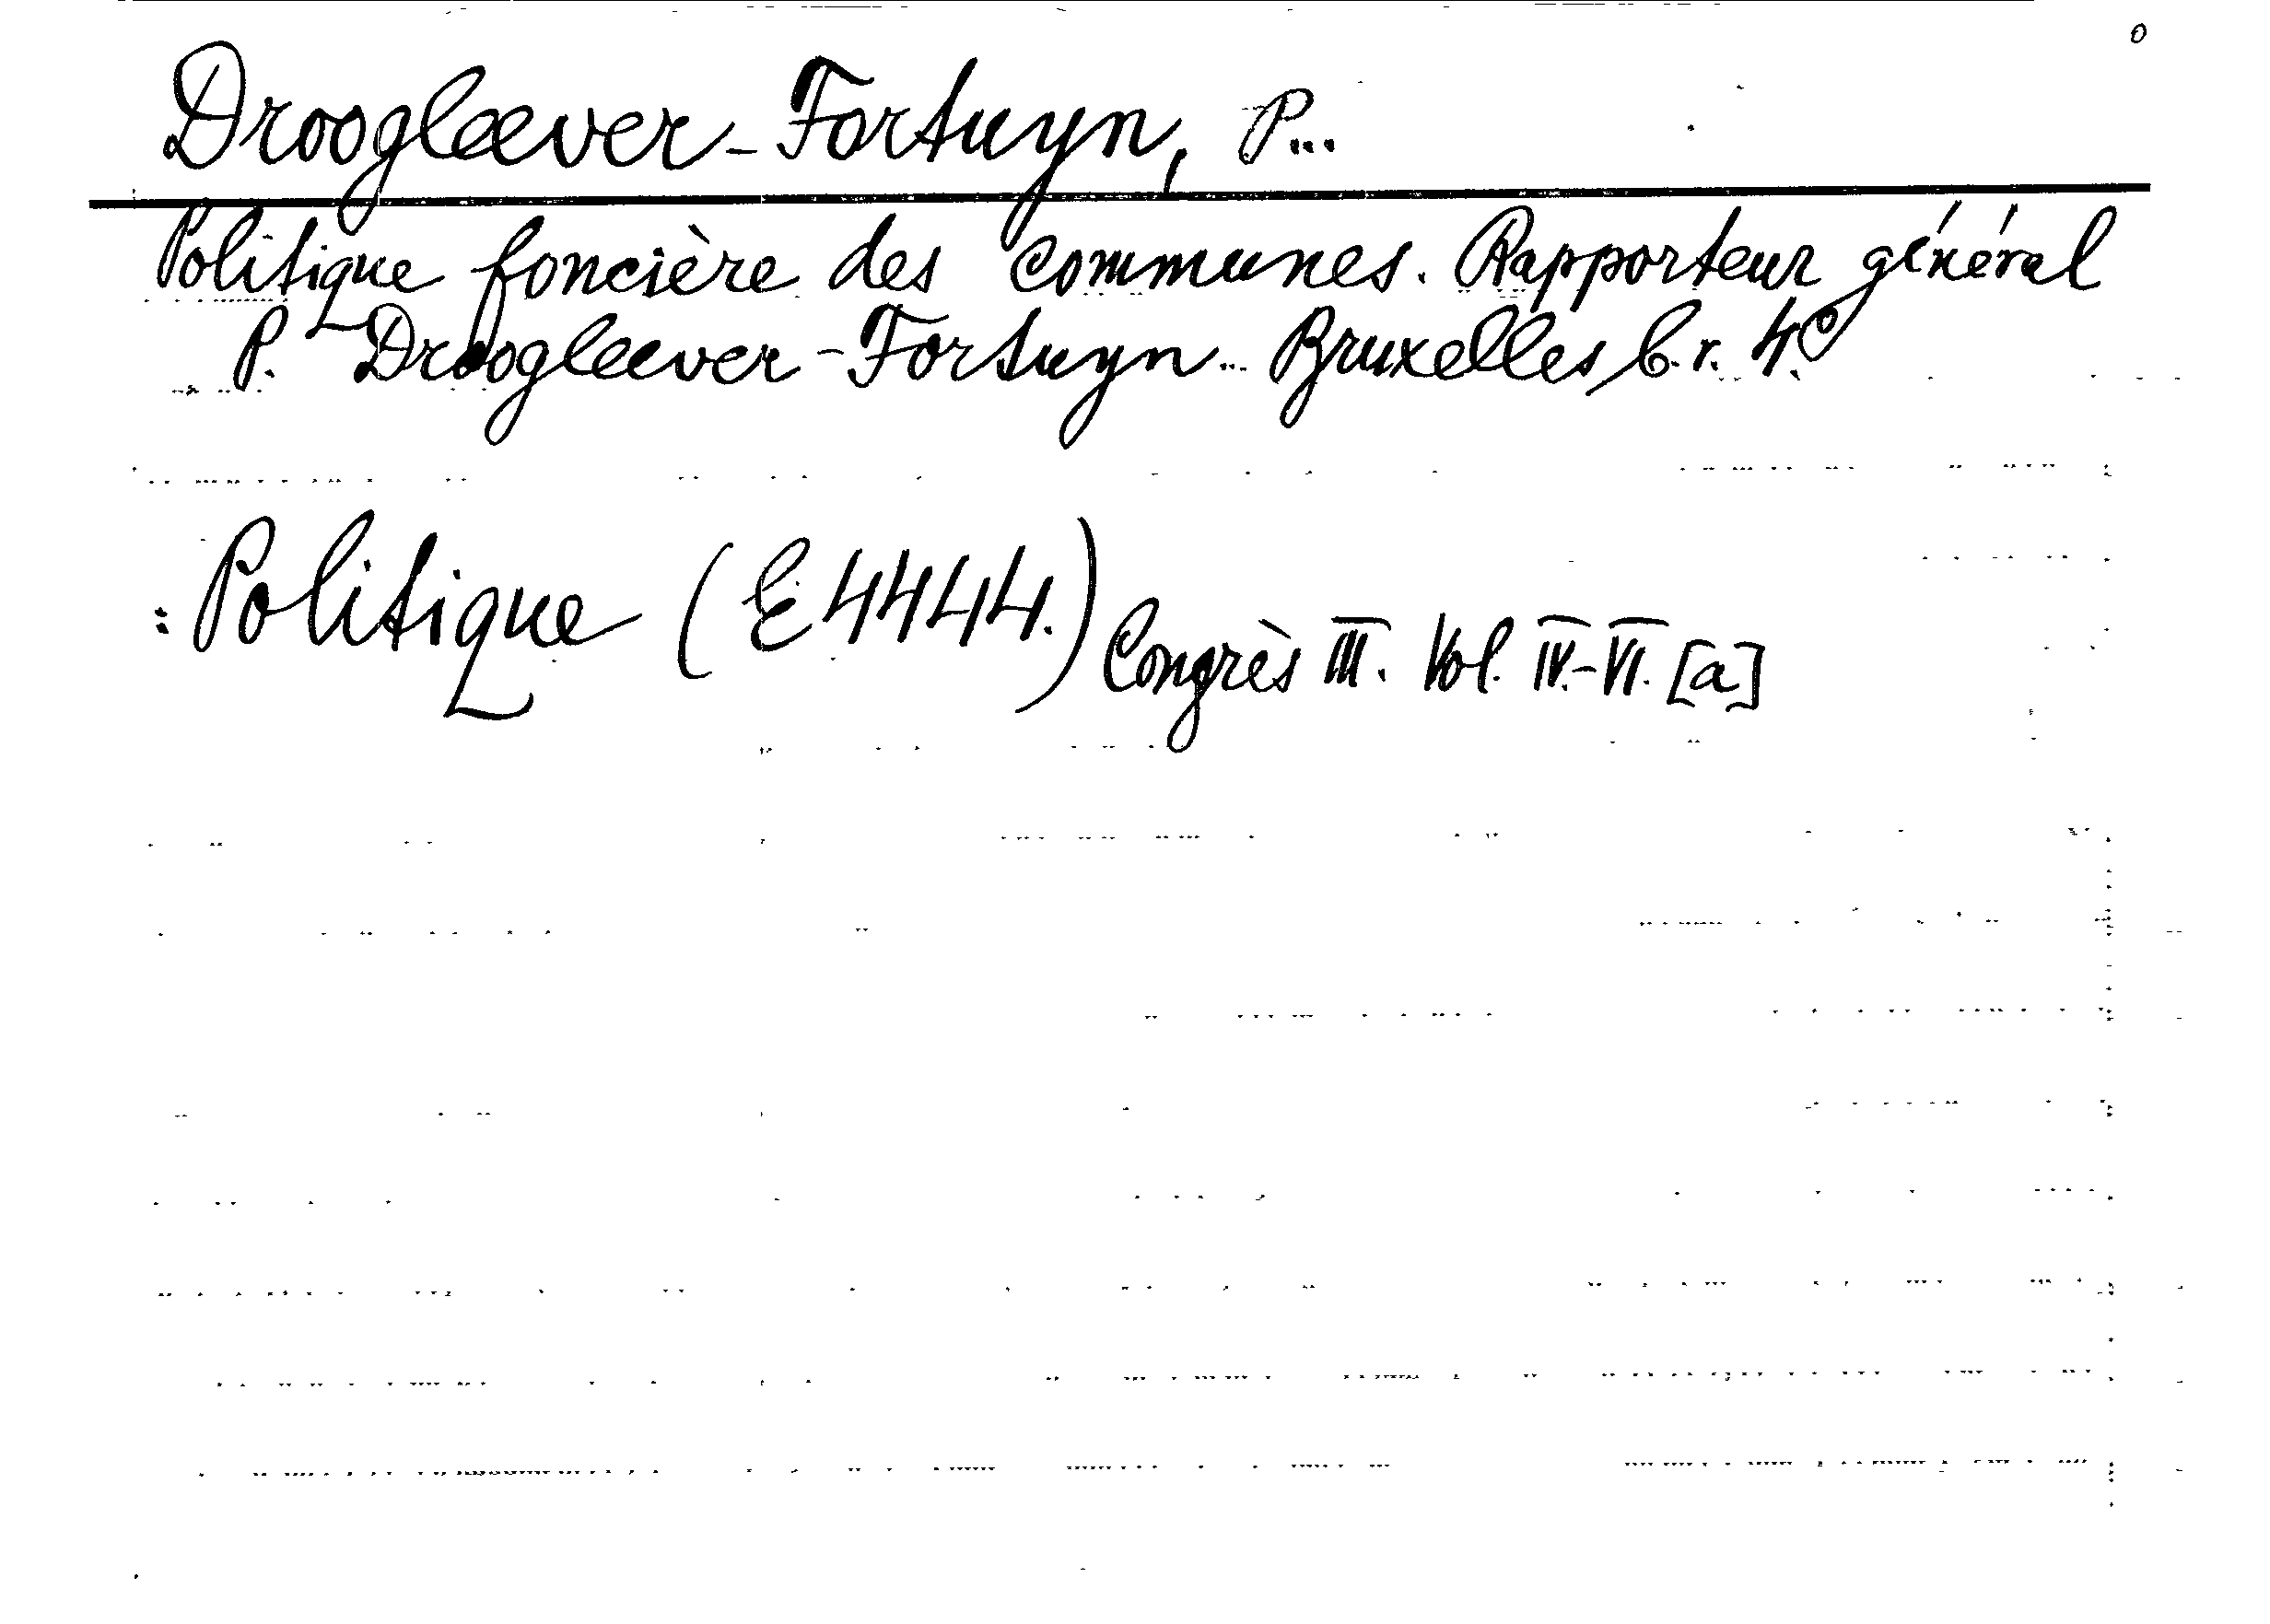 Droogleever-Fortuyn, P...
Politique foncière des communes. Rapporteur général
P. Droogleever-Fortuyn... Bruxelles, b. r. 4°
: Politique (E 4444.) Congrès III. Vol. IV.-VI. [a]